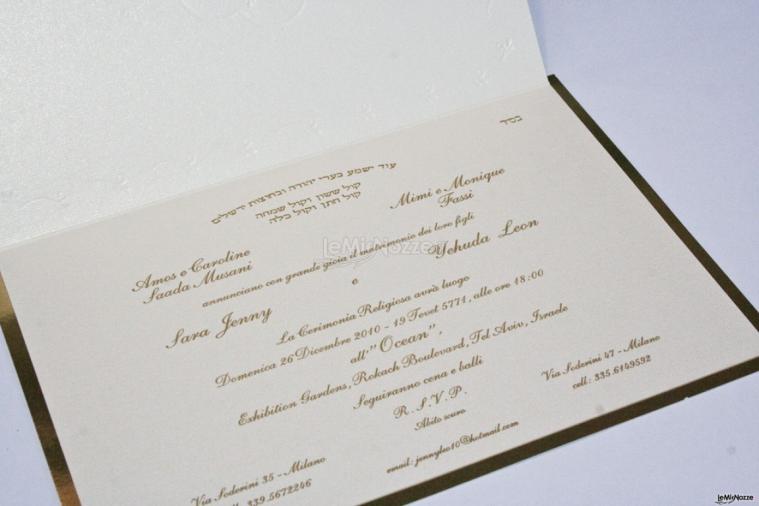 בסד
עוד ישמע בערי יהודה ובחוצות ירושלים
קול ששון וקול שמחה
קול חתן וקול כלה
Amos e Caroline
Saada Musani
Mimi e Monique
Fassi
annunciano con grande gioia il matrimonio dei loro figli
Sara Jenny
e
Yehuda Leon
La Cerimonia Religiosa avrà luogo
Domenica 26 Dicembre 2010 - 19 Tevet 5771, alle ore 18:00
all'"Ocean",
Exhibition Gardens, Rokach Boulevard, Tel Aviv, Israele
Seguiranno cena e balli
R.S.V.P.
Abito scuro
Via Soderini 35 - Milano
cell. 339.5672246
email: jennyleo10@hotmail.com
Via Soderini 47 - Milano
cell: 335.6149592
LeMieNozze
LeMieNozze